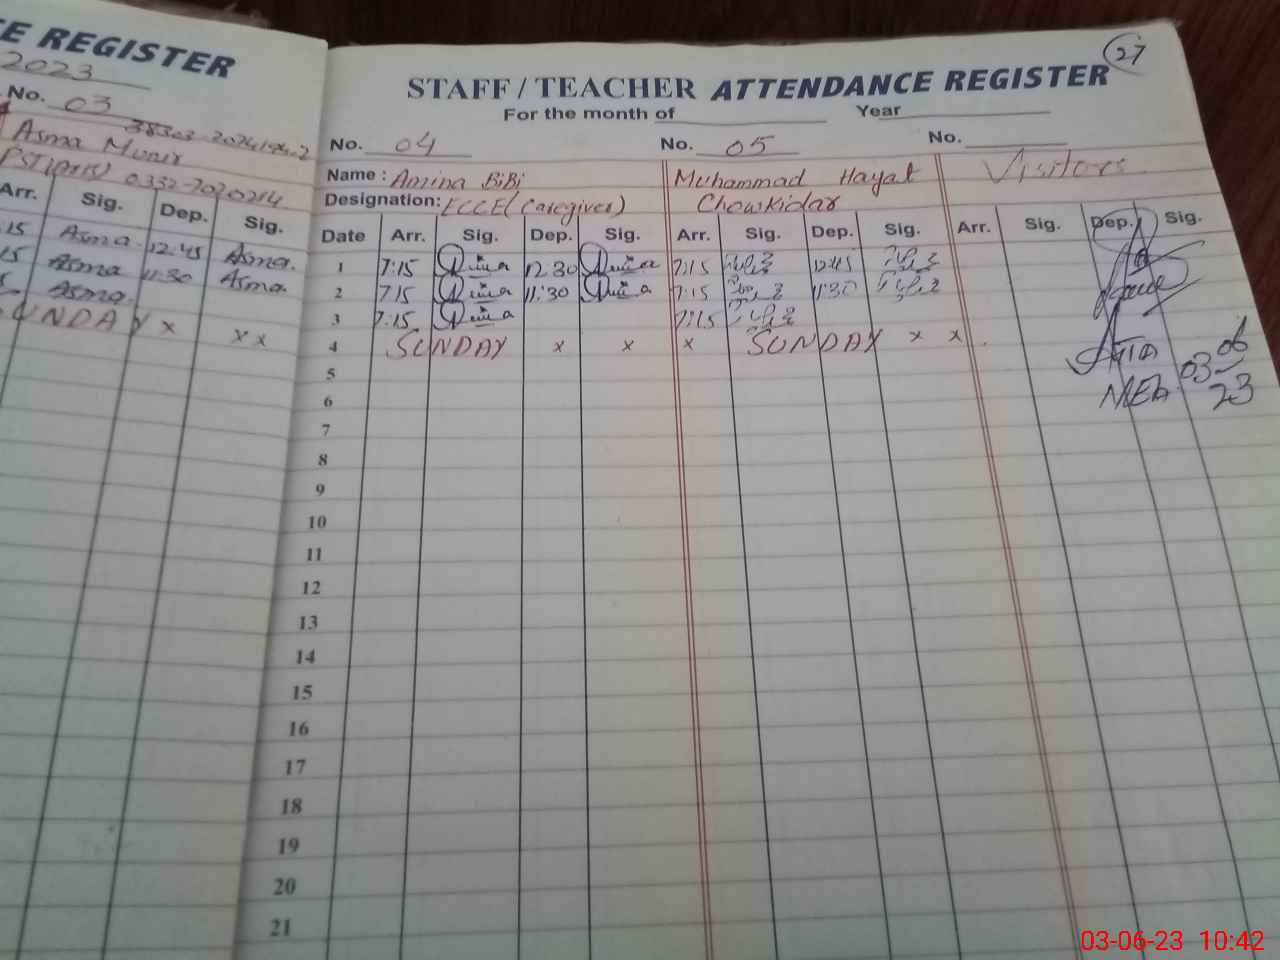 CE REGISTER
2023
No. 03
Asma Munir
0332-7020214
Arr. Sig. Dep. Sig.
15 Asma 12:45 Asma.
15 Asma 11:30 Asma
Asma.
UNDAY x x x
27
STAFF / TEACHER ATTENDANCE REGISTER
For the month of Year
No. 04 No. 05 No.
Name : Amina BiBi Muhammad Hayat Visitors
Designation: ECCE (Caregiver) Chowkidar
Date Arr. Sig. Dep. Sig. Arr. Sig. Dep. Sig. Arr. Sig. Dep. Sig.
1 7:15 12:30 7:15 12:45
2 7:15 11:30 7:15 11:30
3 7:15 7:15
4 SUNDAY x x x SUNDAY x x
5
6
7
8
9
10
11
12
13
14
15
16
17
18
19
20
21
MEA 03 06
23
03-06-23 10:42